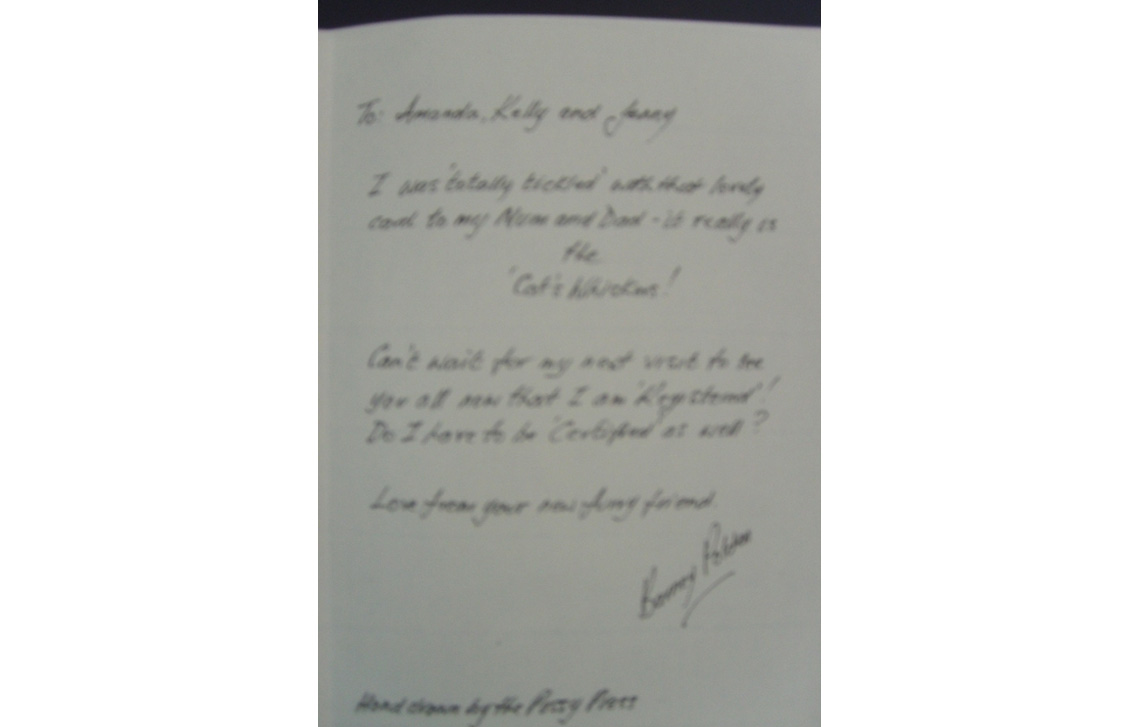 To: Amanda, Kelly and Jenny
I was 'totally tickled' with that lovely
card to my Mum and Dad - it really is
the
'Cat's Whiskers!
Can't wait for my next visit to see
you all now that I am 'Registered'!
Do I have to be 'Certified' as well?
Love from your new furry friend.
Hand drawn by the Pussy Press